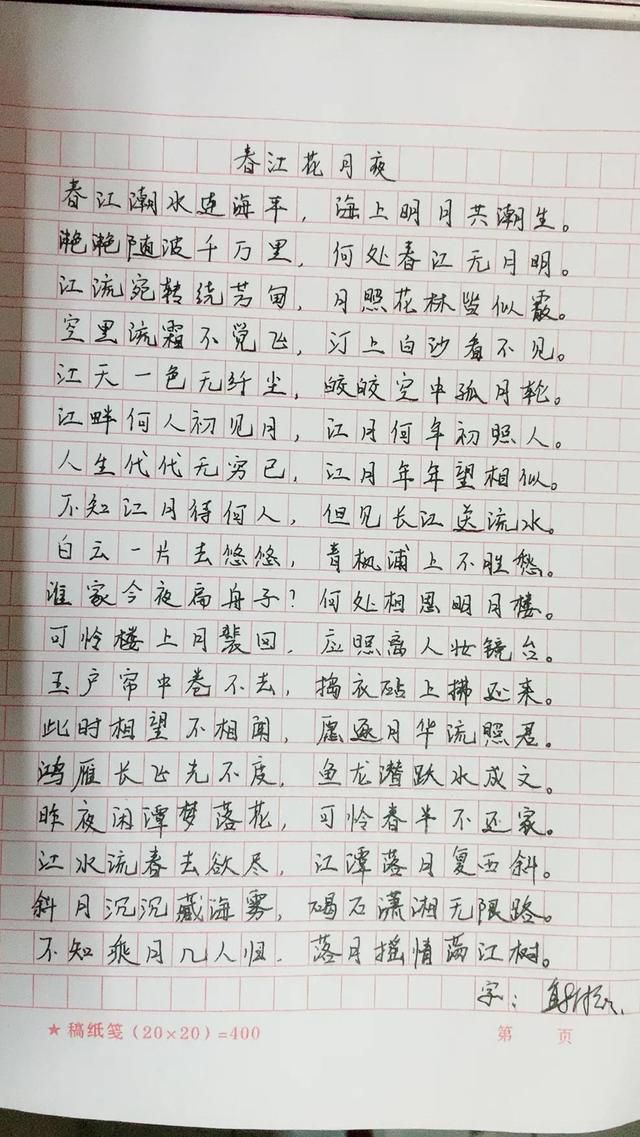 春江花月夜
春江潮水连海平，海上明月共潮生。
滟滟随波千万里，何处春江无月明。
江流宛转绕芳甸，月照花林皆似霰。
空里流霜不觉飞，汀上白沙看不见。
江天一色无纤尘，皎皎空中孤月轮。
江畔何人初见月，江月何年初照人。
人生代代无穷已，江月年年望相似。
不知江月待何人，但见长江送流水。
白云一片去悠悠，青枫浦上不胜愁。
谁家今夜扁舟子？何处相思明月楼。
可怜楼上月裴回，应照离人妆镜台。
玉户帘中卷不去，捣衣砧上拂还来。
此时相望不相闻，愿逐月华流照君。
鸿雁长飞光不度，鱼龙潜跃水成文。
昨夜闲潭梦落花，可怜春半不还家。
江水流春去欲尽，江潭落月复西斜。
斜月沉沉藏海雾，碣石潇湘无限路。
不知乘月几人归，落月摇情满江树。
字：
★稿纸笺(20×20)=400 第 页